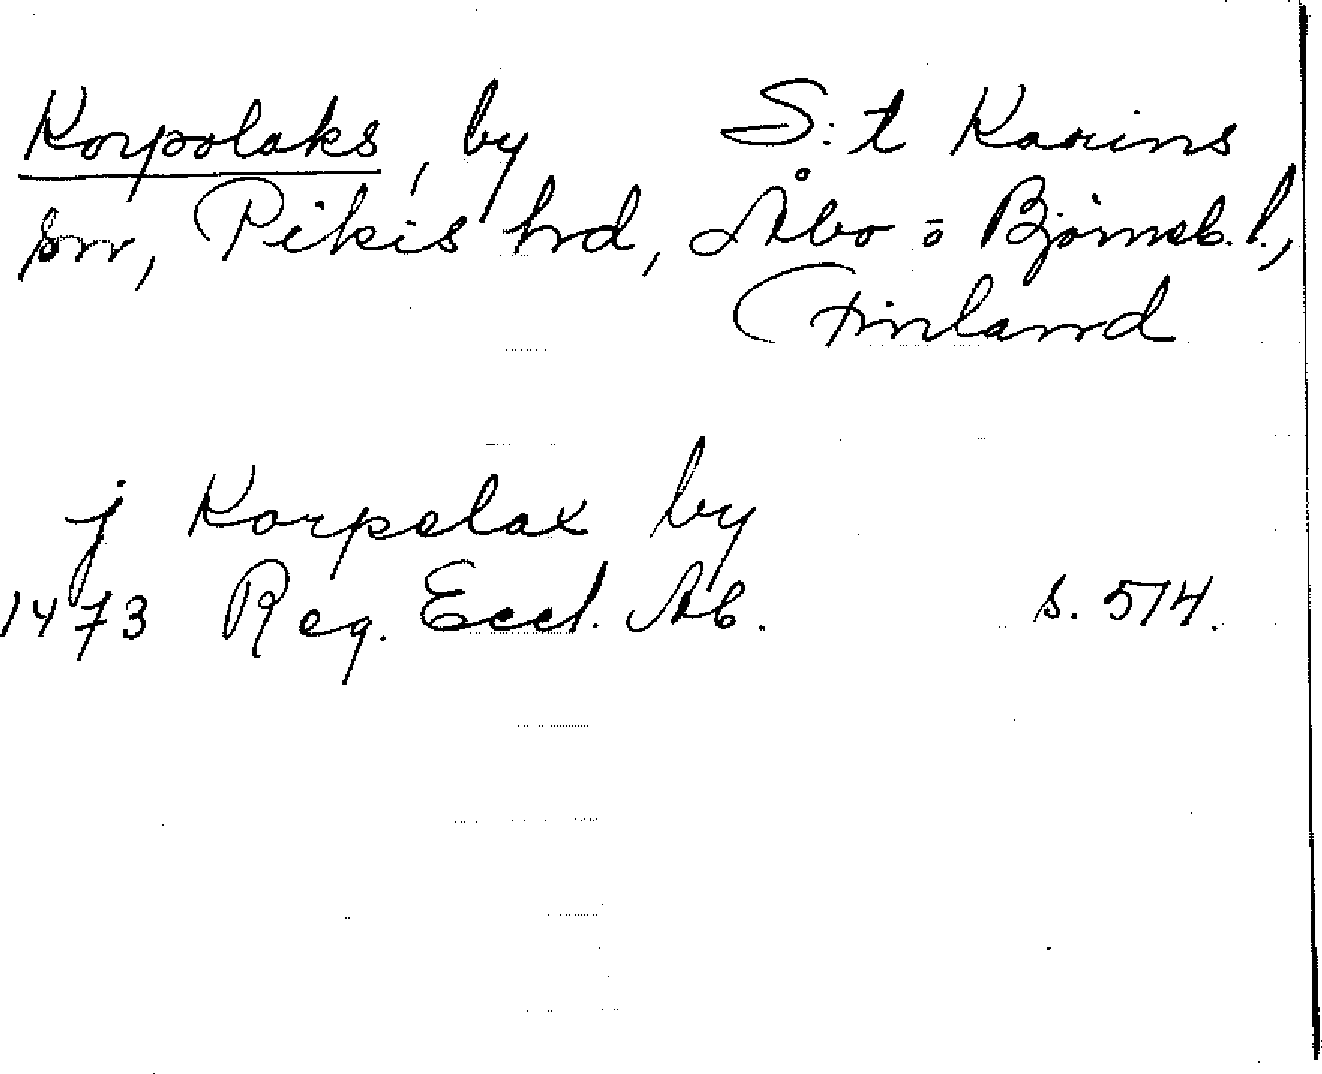 Korpolaks, by S:t Karins
sn, Pikis hd, Åbo = Björneb. l.,
Finland
j Korpelax by
1473 Reg. Eccl. Ab. s. 574.